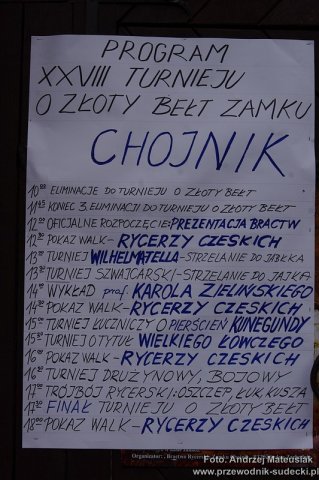 PROGRAM
XXVIII TURNIEJU
O ZŁOTY BEŁT ZAMKU
CHOJNIK
10⁰⁰ ELIMINACJE DO TURNIEJU O ZŁOTY BEŁT
11⁴⁵ KONIEC 3. ELIMINACJI DO TURNIEJU O ZŁOTY BEŁT
12⁰⁰ OFICJALNE ROZPOCZĘCIE: PREZENTACJA BRACTW
12³⁰ POKAZ WALK - RYCERZY CZESKICH
13⁰⁰ TURNIEJ WILHELMA TELLA - STRZELANIE DO JABŁKA
13³⁰ TURNIEJ SZWAJCARSKI - STRZELANIE DO JAJKA
14⁰⁰ WYKŁAD prof. KAROLA ZIELIŃSKIEGO
14³⁰ POKAZ WALK - RYCERZY CZESKICH
15⁰⁰ TURNIEJ ŁUCZNICZY O PIERŚCIEŃ KUNEGUNDY
15³⁰ TURNIEJ O TYTUŁ WIELKIEGO ŁOWCZEGO
16⁰⁰ POKAZ WALK - RYCERZY CZESKICH
16³⁰ TURNIEJ DRUŻYNOWY, BOJOWY
17⁰⁰ TRÓJBÓJ RYCERSKI: OSZCZEP, ŁUK, KUSZA
17³⁰ FINAŁ TURNIEJU O ZŁOTY BEŁT
18⁰⁰ POKAZ WALK - RYCERZY CZESKICH
Foto: Andrzej Mateusiak
Organizator: Bractwo
www.przewodnik-sudecki.pl